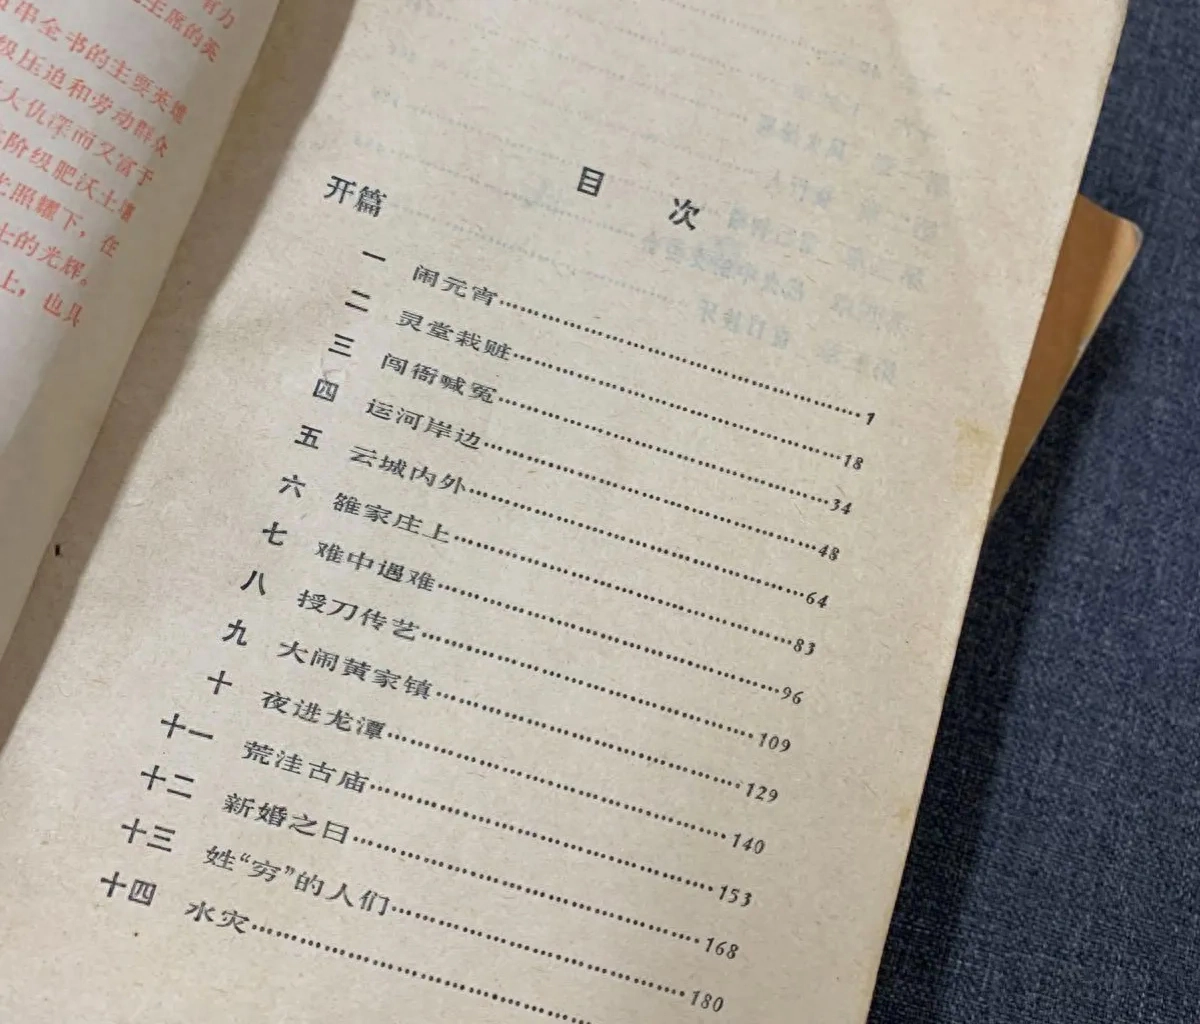 有力
主席的英
串全书的主要英雄
级压迫和劳动群众
大仇深而又富于
阶级肥沃土壤
光照耀下，在
士的光辉。
上，也具
目 次
开篇
一 闹元宵……1
二 灵堂栽赃……18
三 闯衙喊冤……34
四 运河岸边……48
五 云城内外……64
六 雒家庄上……83
七 难中遇难……96
八 授刀传艺……109
九 大闹黄家镇……129
十 夜进龙潭……140
十一 荒洼古庙……153
十二 新婚之日……168
十三 姓“穷”的人们……180
十四 水灾……